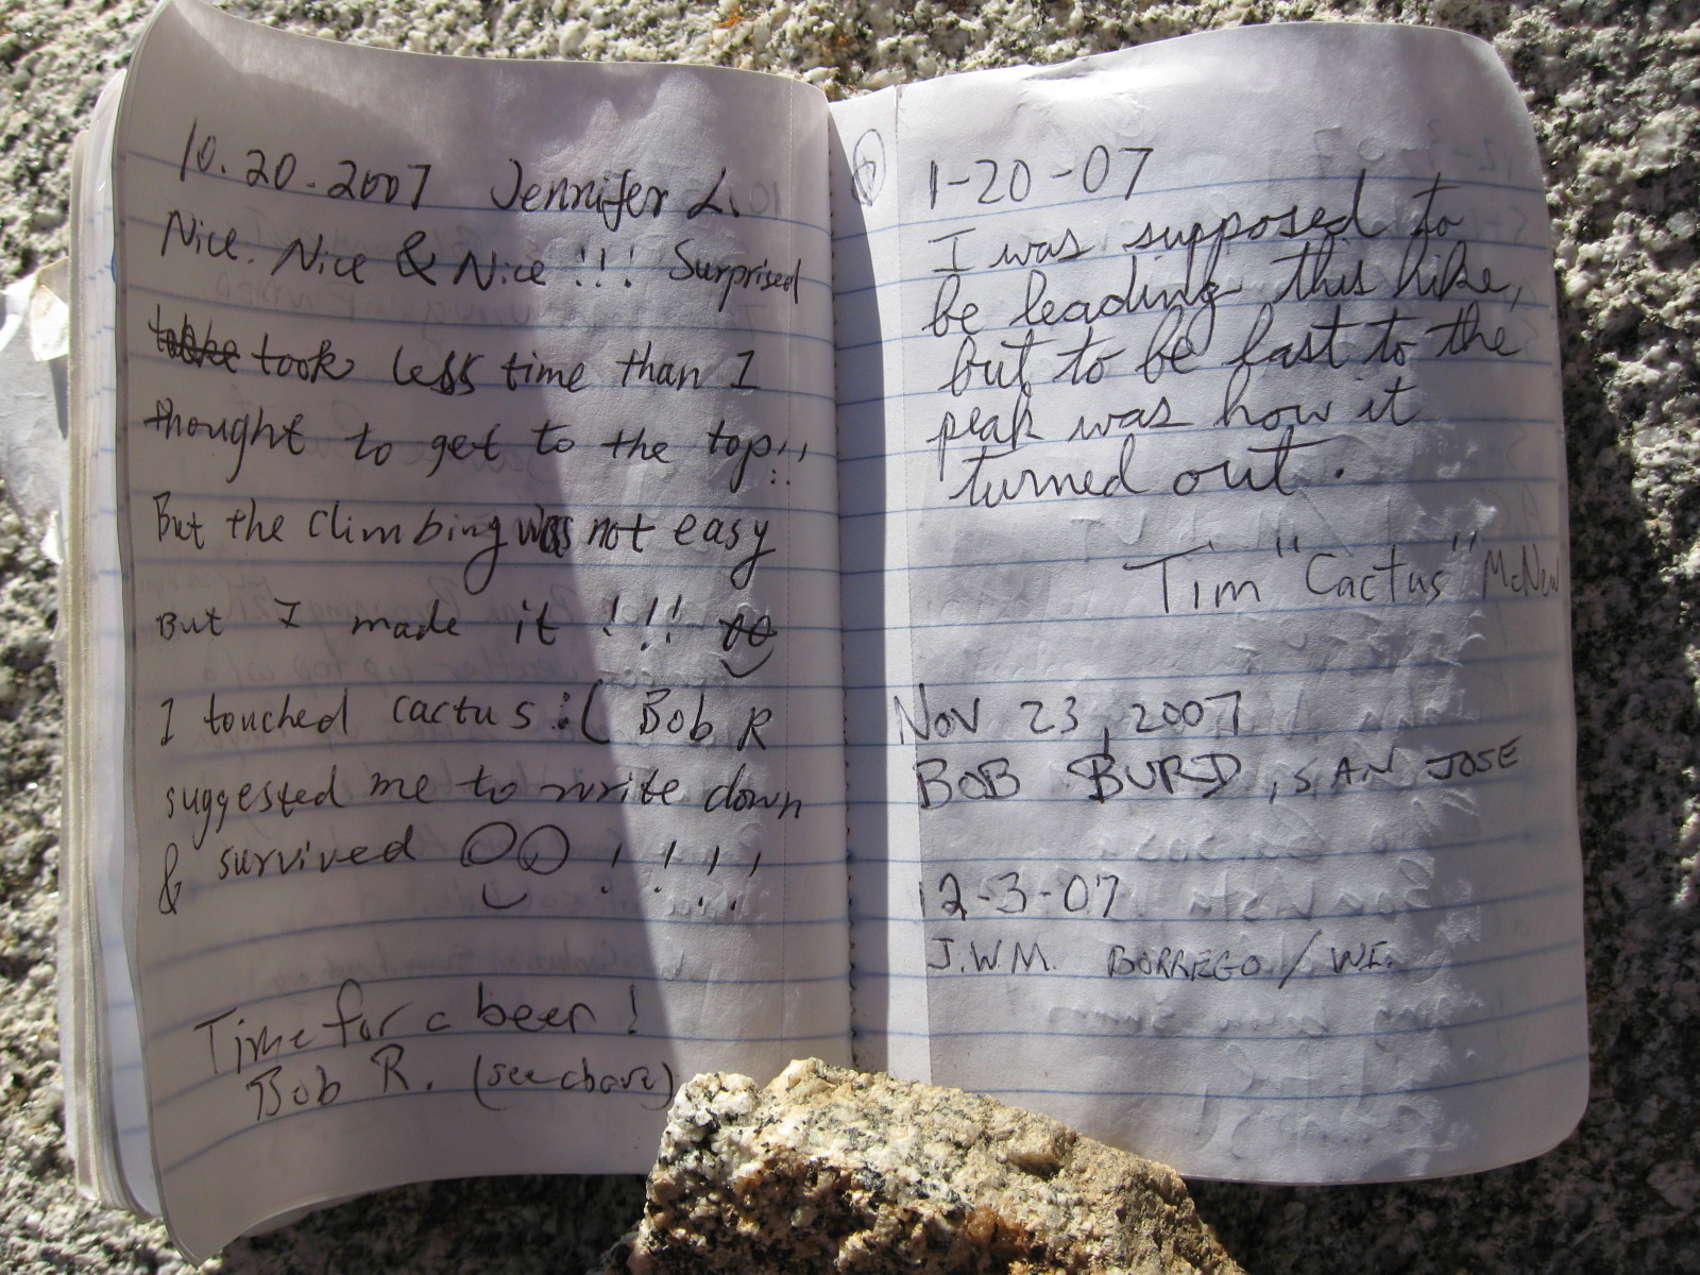 10.20.2007 Jennifer L.
Nice. Nice & Nice!!! Surprised
took less time than I
thought to get to the top!!
But the climbing was not easy
But I made it!!!
I touched cactus :( Bob R
suggested me to write down
& survived !!!!
Time for a beer!
Bob R. (see above)
1-20-07
I was supposed to
be leading this hike,
but to be last to the
peak was how it
turned out.
Tim "Cactus" McNew
Nov 23, 2007
BOB BURD, SAN JOSE
12-3-07
J.W.M. BORREGO /